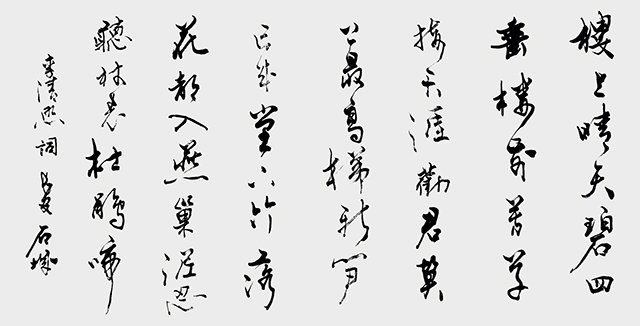 樓上晴天碧四
垂樓前芳草
接天涯勸君莫
上最高梯新笋
已成堂下竹落
花都入燕巢泥忍
聽林表杜鵑啼
李清照詞